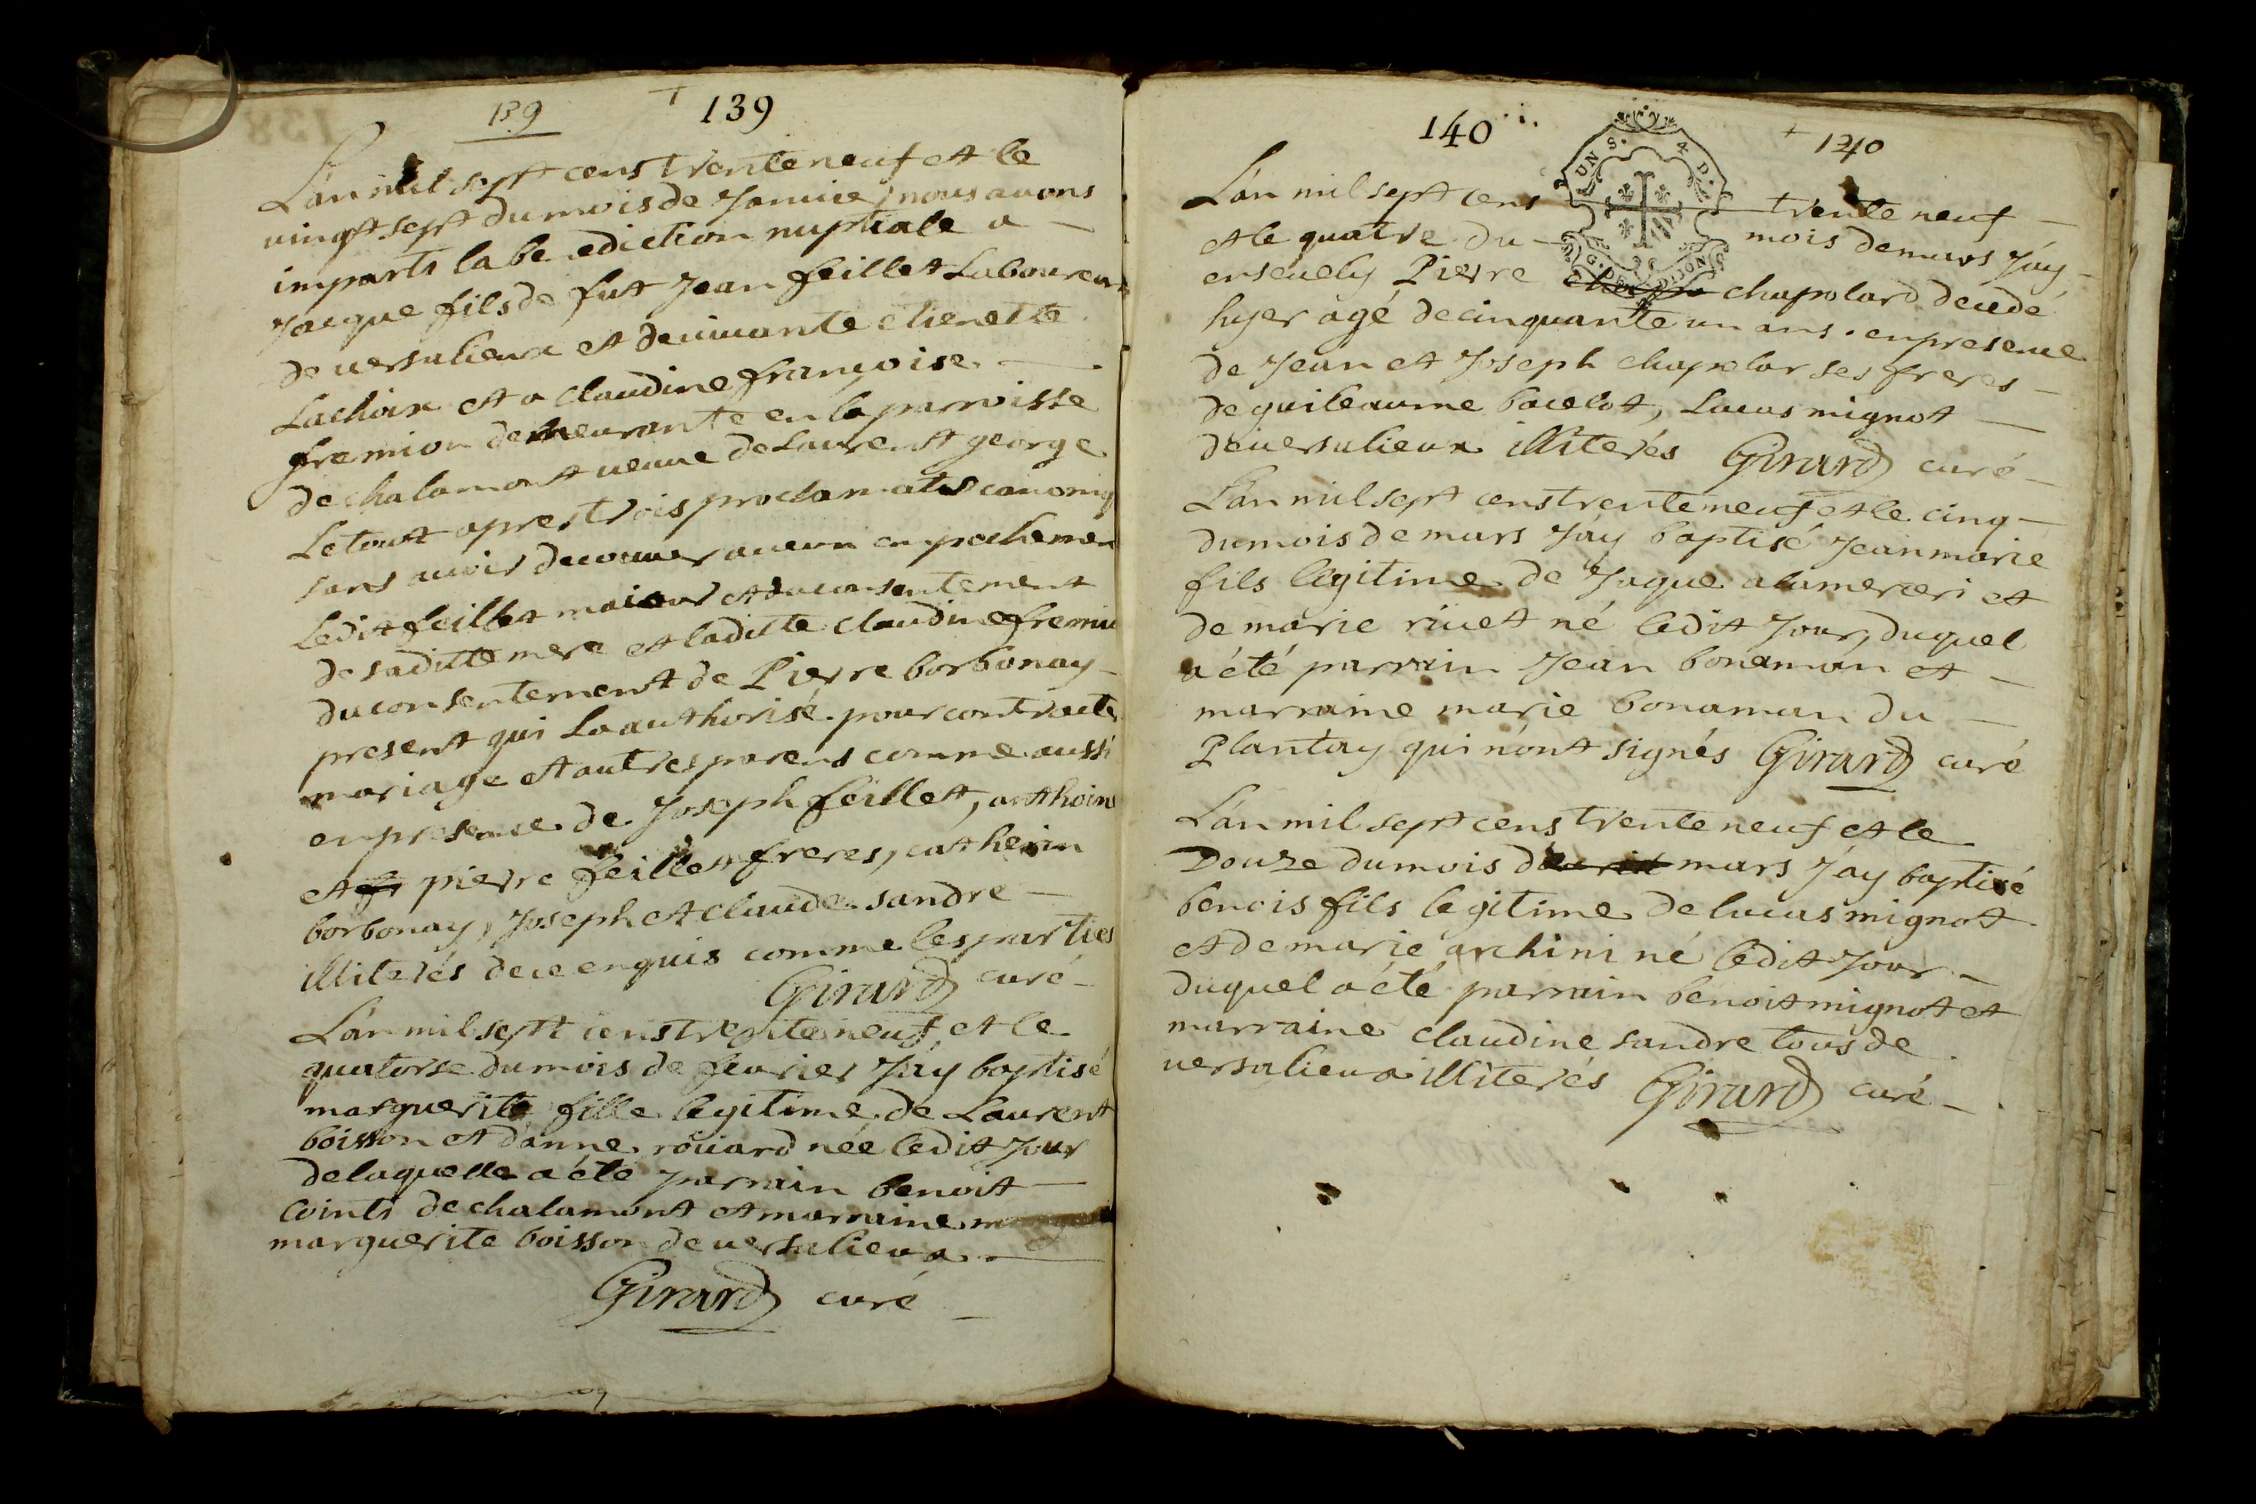 139 139
L'an mil sept cens trente neuf et le
vingt sept du mois de Janvier nous avons
imparti la be ediction nuptiale a
Jacque fils de fut Jean feillet Laboureur
de versalieux et de vivante etienette
Lachoix et a Claudine françoise
fremion demeurante en la parroisse
de chalamont veuve de Laurent george
Le tout apres trois proclamats canoniq
sans avoir decouver aucun enpechemen
Ledit feillet maieur et du consentement
de saditte mere et laditte claudine fremiu
du consentement de Pierre borbonay
present qui la authorisé pour contracte
mariage et autres parens comme aussi
en presence de Joseph feillet, anthoine
et pierre feillet freres, catherin
borbonay, Joseph et claude sandre
illiterés de ce enquis comme les parties
Girard curé
L'an mil sept cens trente neuf et le
quatorse du mois de fevrier J'ay baptisé
marguerite fille legitime de Laurent
boisson et d'anne roüard née ledit Jour
de laquelle a été parrain benoit
Cointi de chalamont et marraine
marguerite boisson de versalieux
Girard curé
140 140
UN S. 4 D.
L'án mil sept cens trente neuf
et le quatre du mois de mars J'áy
ensevely Pierre chapolard décedé
hyer agé de cinquante un ans en presence
de Jean et Joseph chapelar ses freres
de guileaume bacelot, Lucas mignot
de versalieux illiterés Girard curé
L'án mil sept cens trente neuf et le cinq
du mois de mars J'áy baptisé Jean marie
fils légitime de Jaque alamerceri et
de marie rivet né ledit Jour, duquel
a été parrain Jean bonaman et
marraine marie bonaman du
Plantay qui n'ont signés Girard curé
L'án mil sept cens trente neuf et le
Douze du mois de mars J'ay baptisé
benois fils legitime de lucas mignot
et de marie archini né ledit Jour
duquel a été parrain benoit mignot et
marraine claudine sandre tous de
versalieux illiterés Girard curé